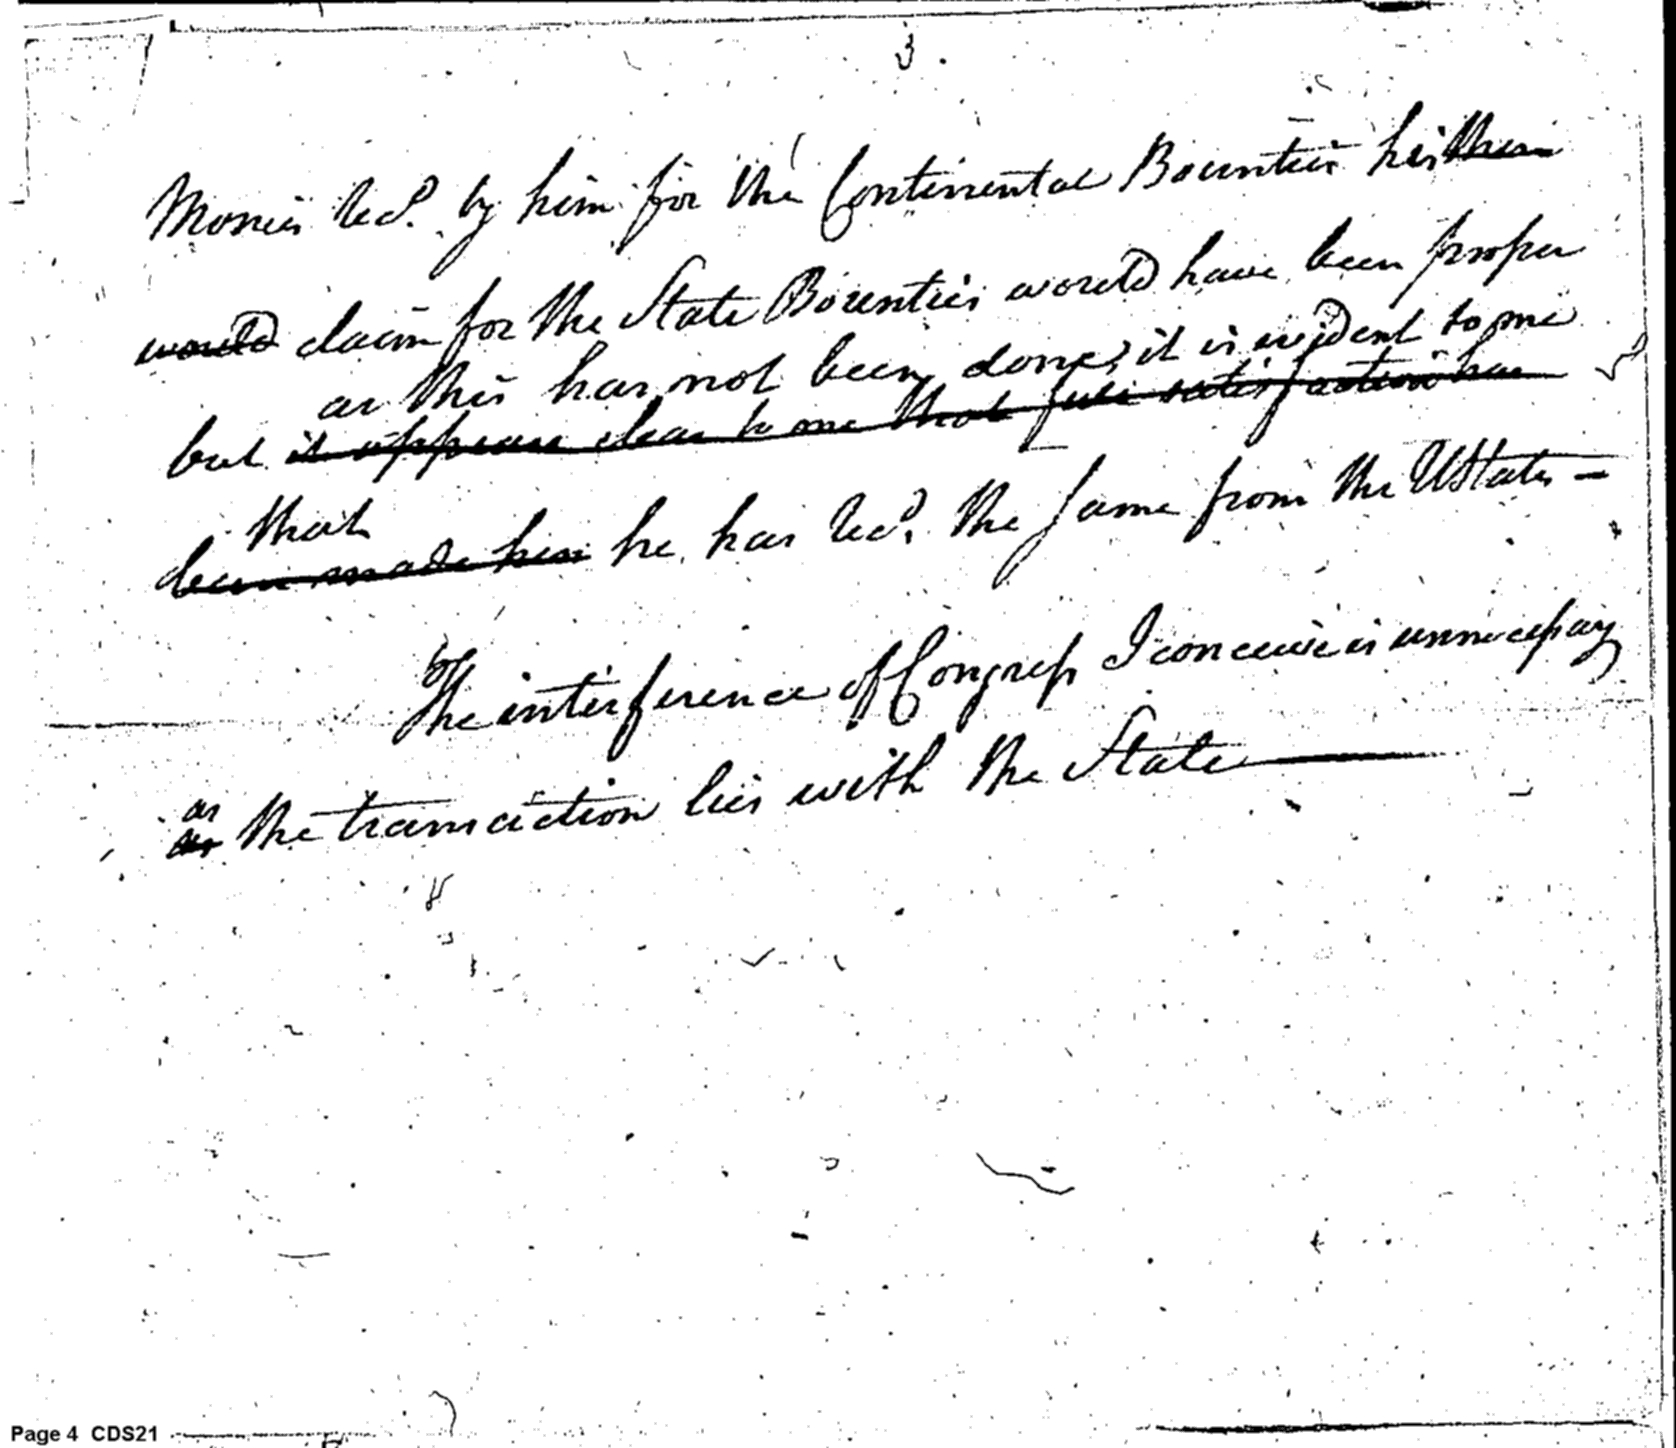 3.
Monies Recd. by him for the Continental Bounties his then
would claim for the State Bounties would have been proper
as this has not been done, it is evident to me
but it appears clear to me that full satisfaction has
that
been made him he has Recd. the same from the UStates -
The interference of Congress I conceive is unnecessary
as
the transaction lies with the State
Page 4 CDS21